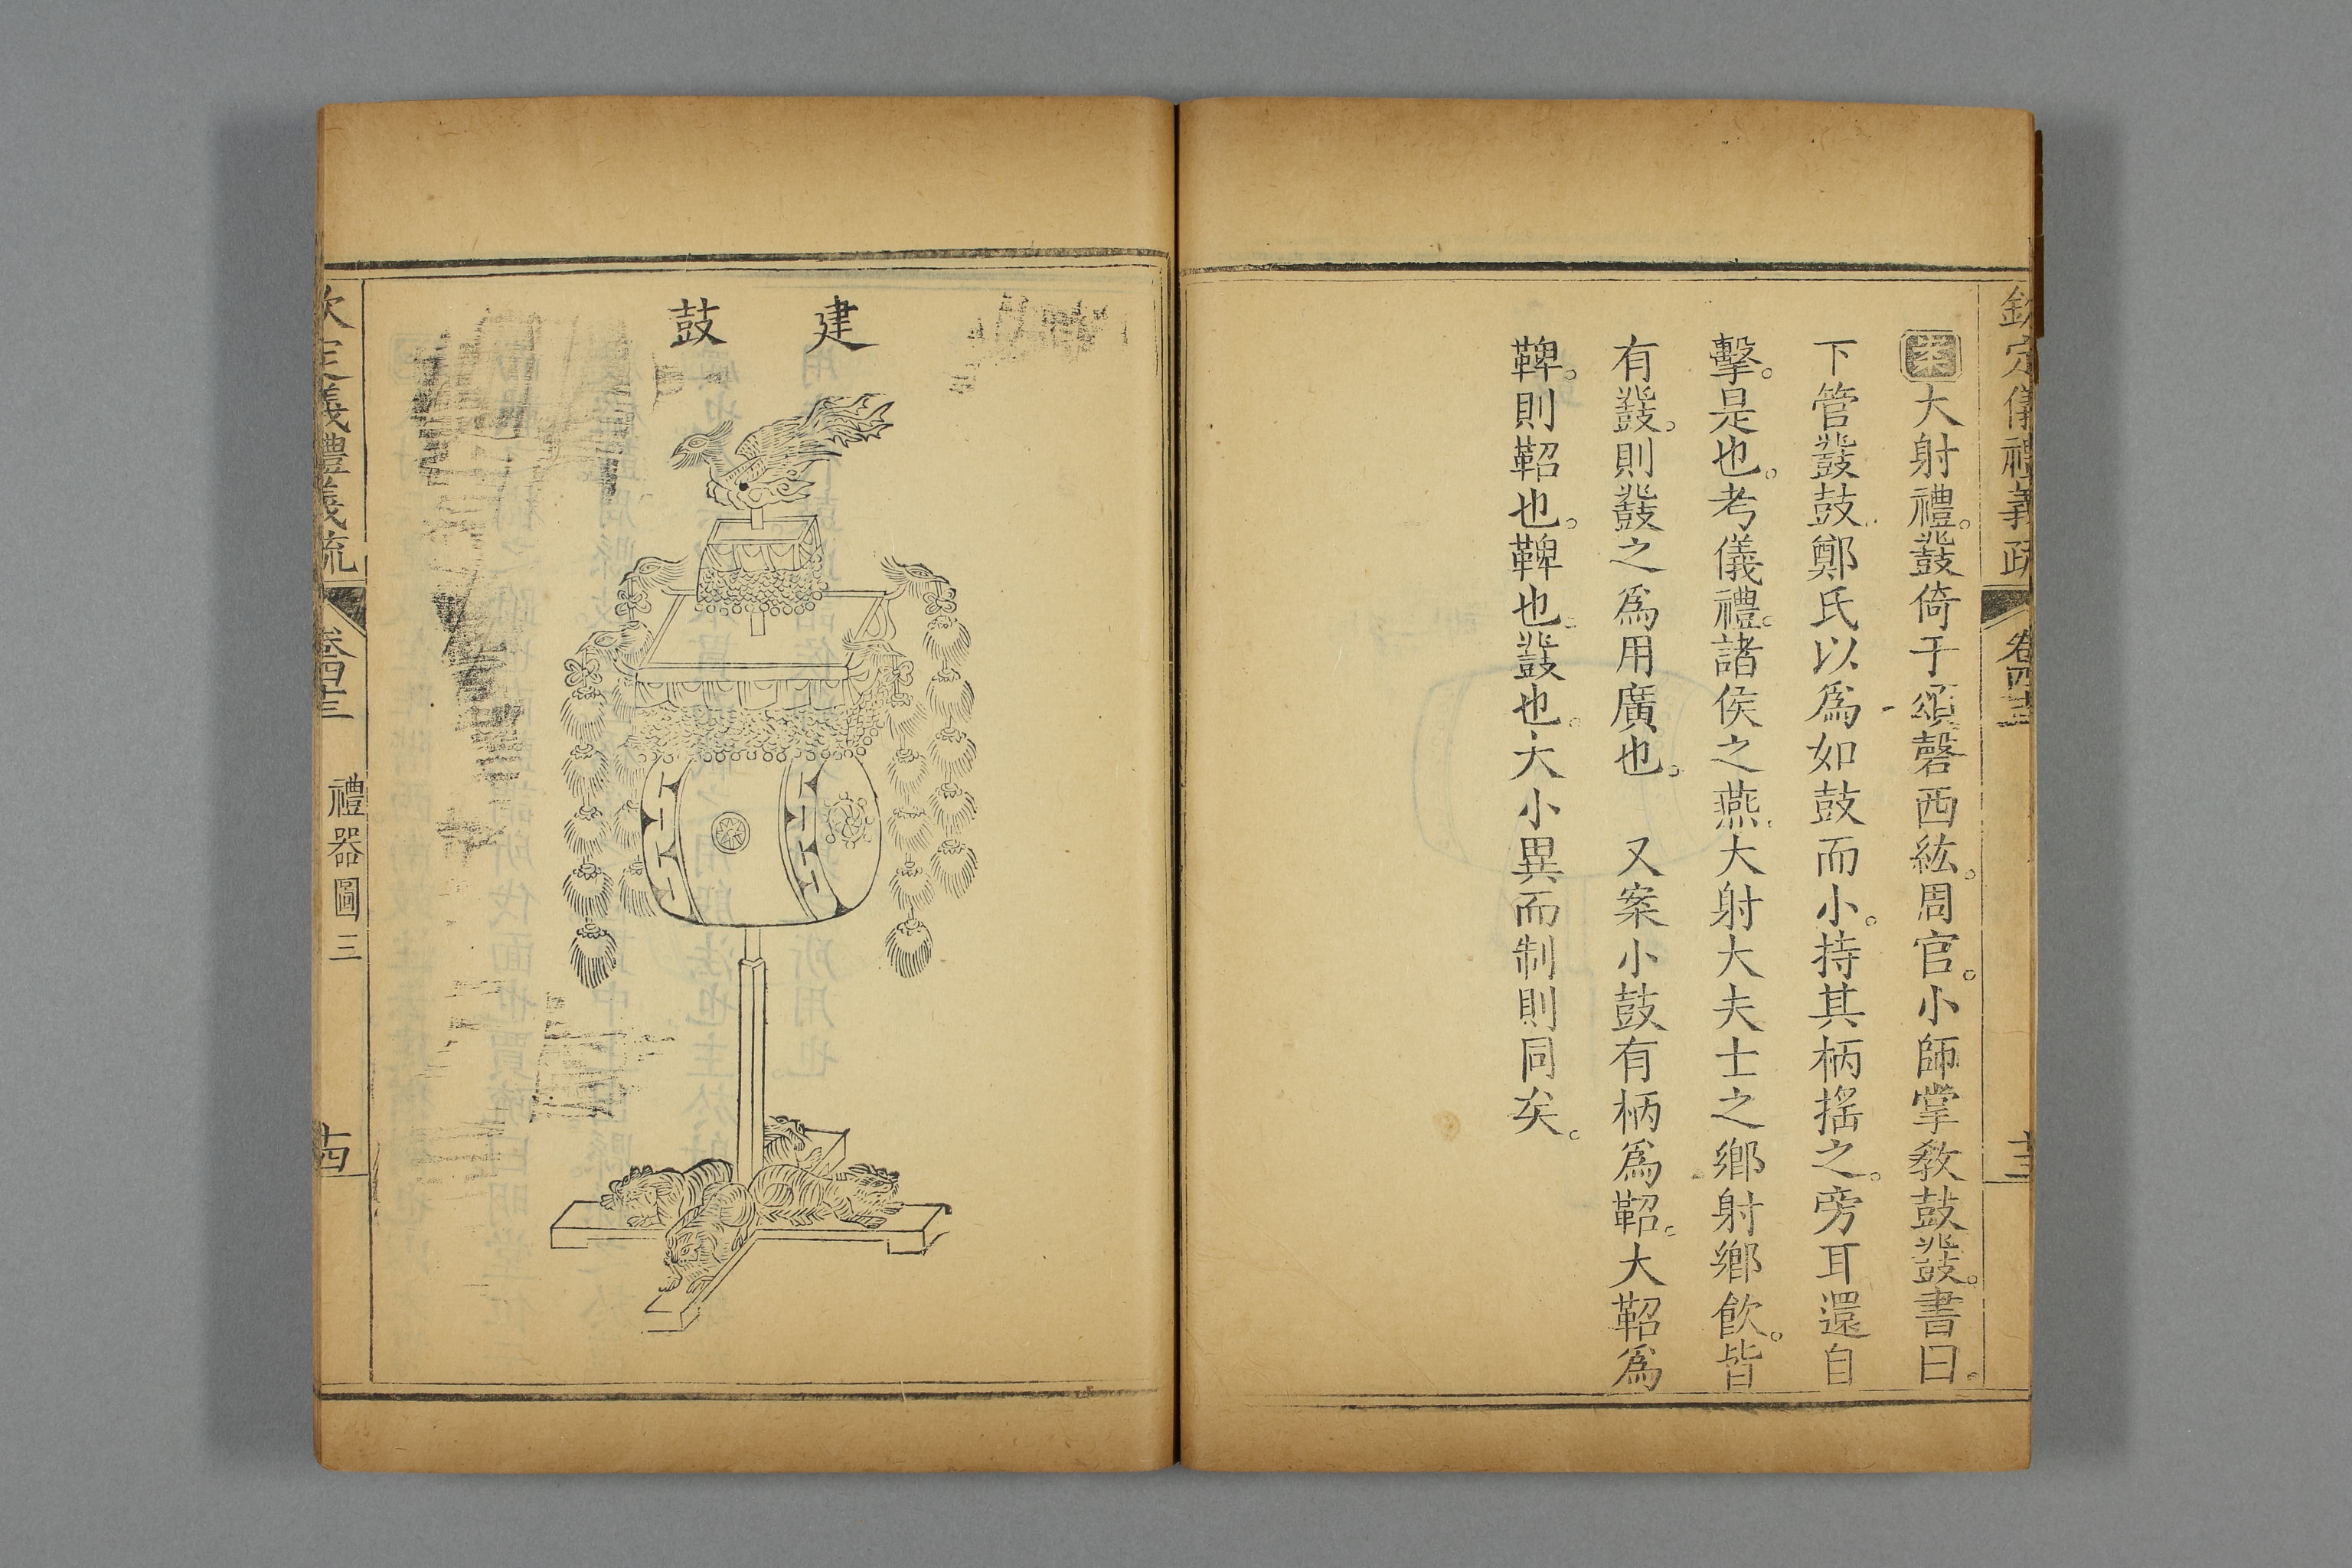 欽定儀禮義疏
卷四十三
十三
案大射禮。鼗倚于頌磬西紘。周官。小師掌教鼓鼗。書曰。
下管鼗鼓。鄭氏以爲如鼓而小。持其柄搖之。旁耳還自
擊。是也。考儀禮。諸侯之燕。大射大夫士之鄉射鄉飲。皆
有鼗。則鼗之爲用廣也。　又案小鼓有柄爲鞀。大鞀爲
鞞。則鞀也。鞞也。鼗也。大小異而制則同矣。
建鼓
欽定儀禮義疏
卷四十三
禮器圖三
十四